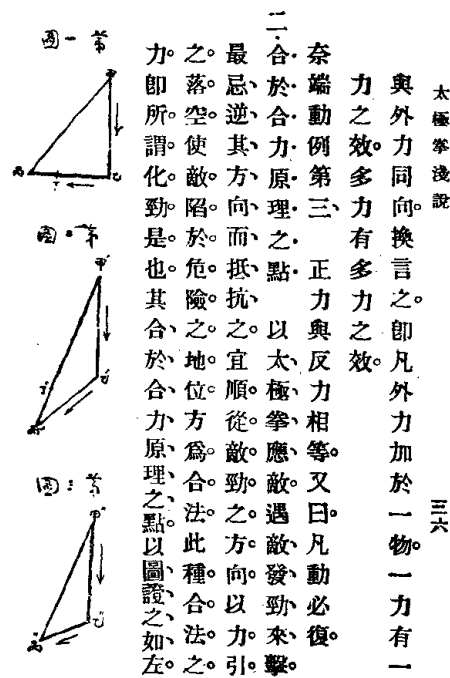 太極拳淺說
三六
與外力同向。換言之。即凡外力加於一物。一力有一
力之效。多力有多力之效。
奈端動例第三、 正力與反力相等。又曰。凡動必復。
二·合於合力原理之點 以太極拳應敵。遇敵發勁來擊。
最忌逆其方向而抵抗之。宜順從敵勁之方向以力引
之落空。使敵陷於危險之地位。方爲合法。此種合法之
力。即所謂化勁是也。其合於合力原理之點。以圖證之如左。
第一圖
甲
乙
丙
第二圖
甲
乙
丙
第三圖
甲
乙
丙